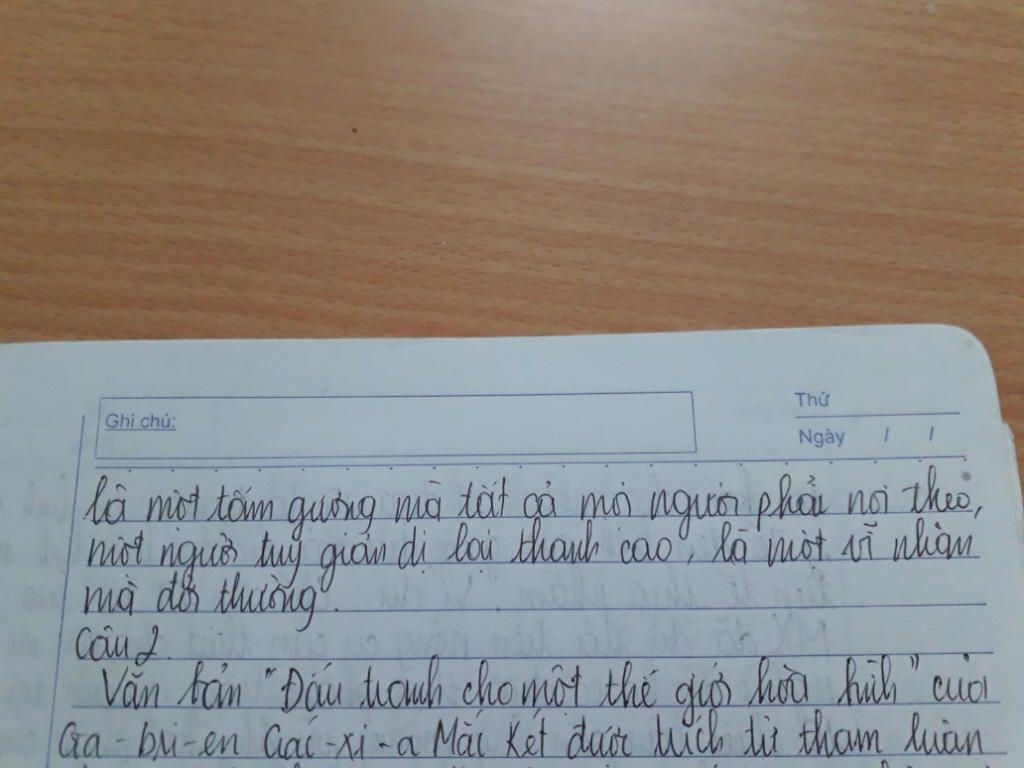 Ghi chú:
Thứ
Ngày / /
là một tấm gương mà tất cả mọi người phải noi theo,
một người tuy giản dị lại thanh cao, là một vĩ nhân
mà đời thường.
Câu 2.
Văn bản "Đấu tranh cho một thế giới hòa bình" của
Ga-bri-en Gác-xi-a Mác Két được trích từ tham luận